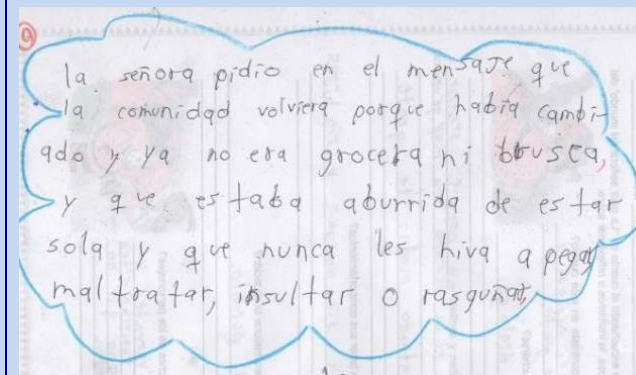 la señora pidio en el mensaje que
la comunidad volviera porque había cambi-
ado y ya no era grocera ni brusca,
y que estaba aburrida de estar
sola y que nunca les hiva a pegar
maltratar, insultar o rasguñar,